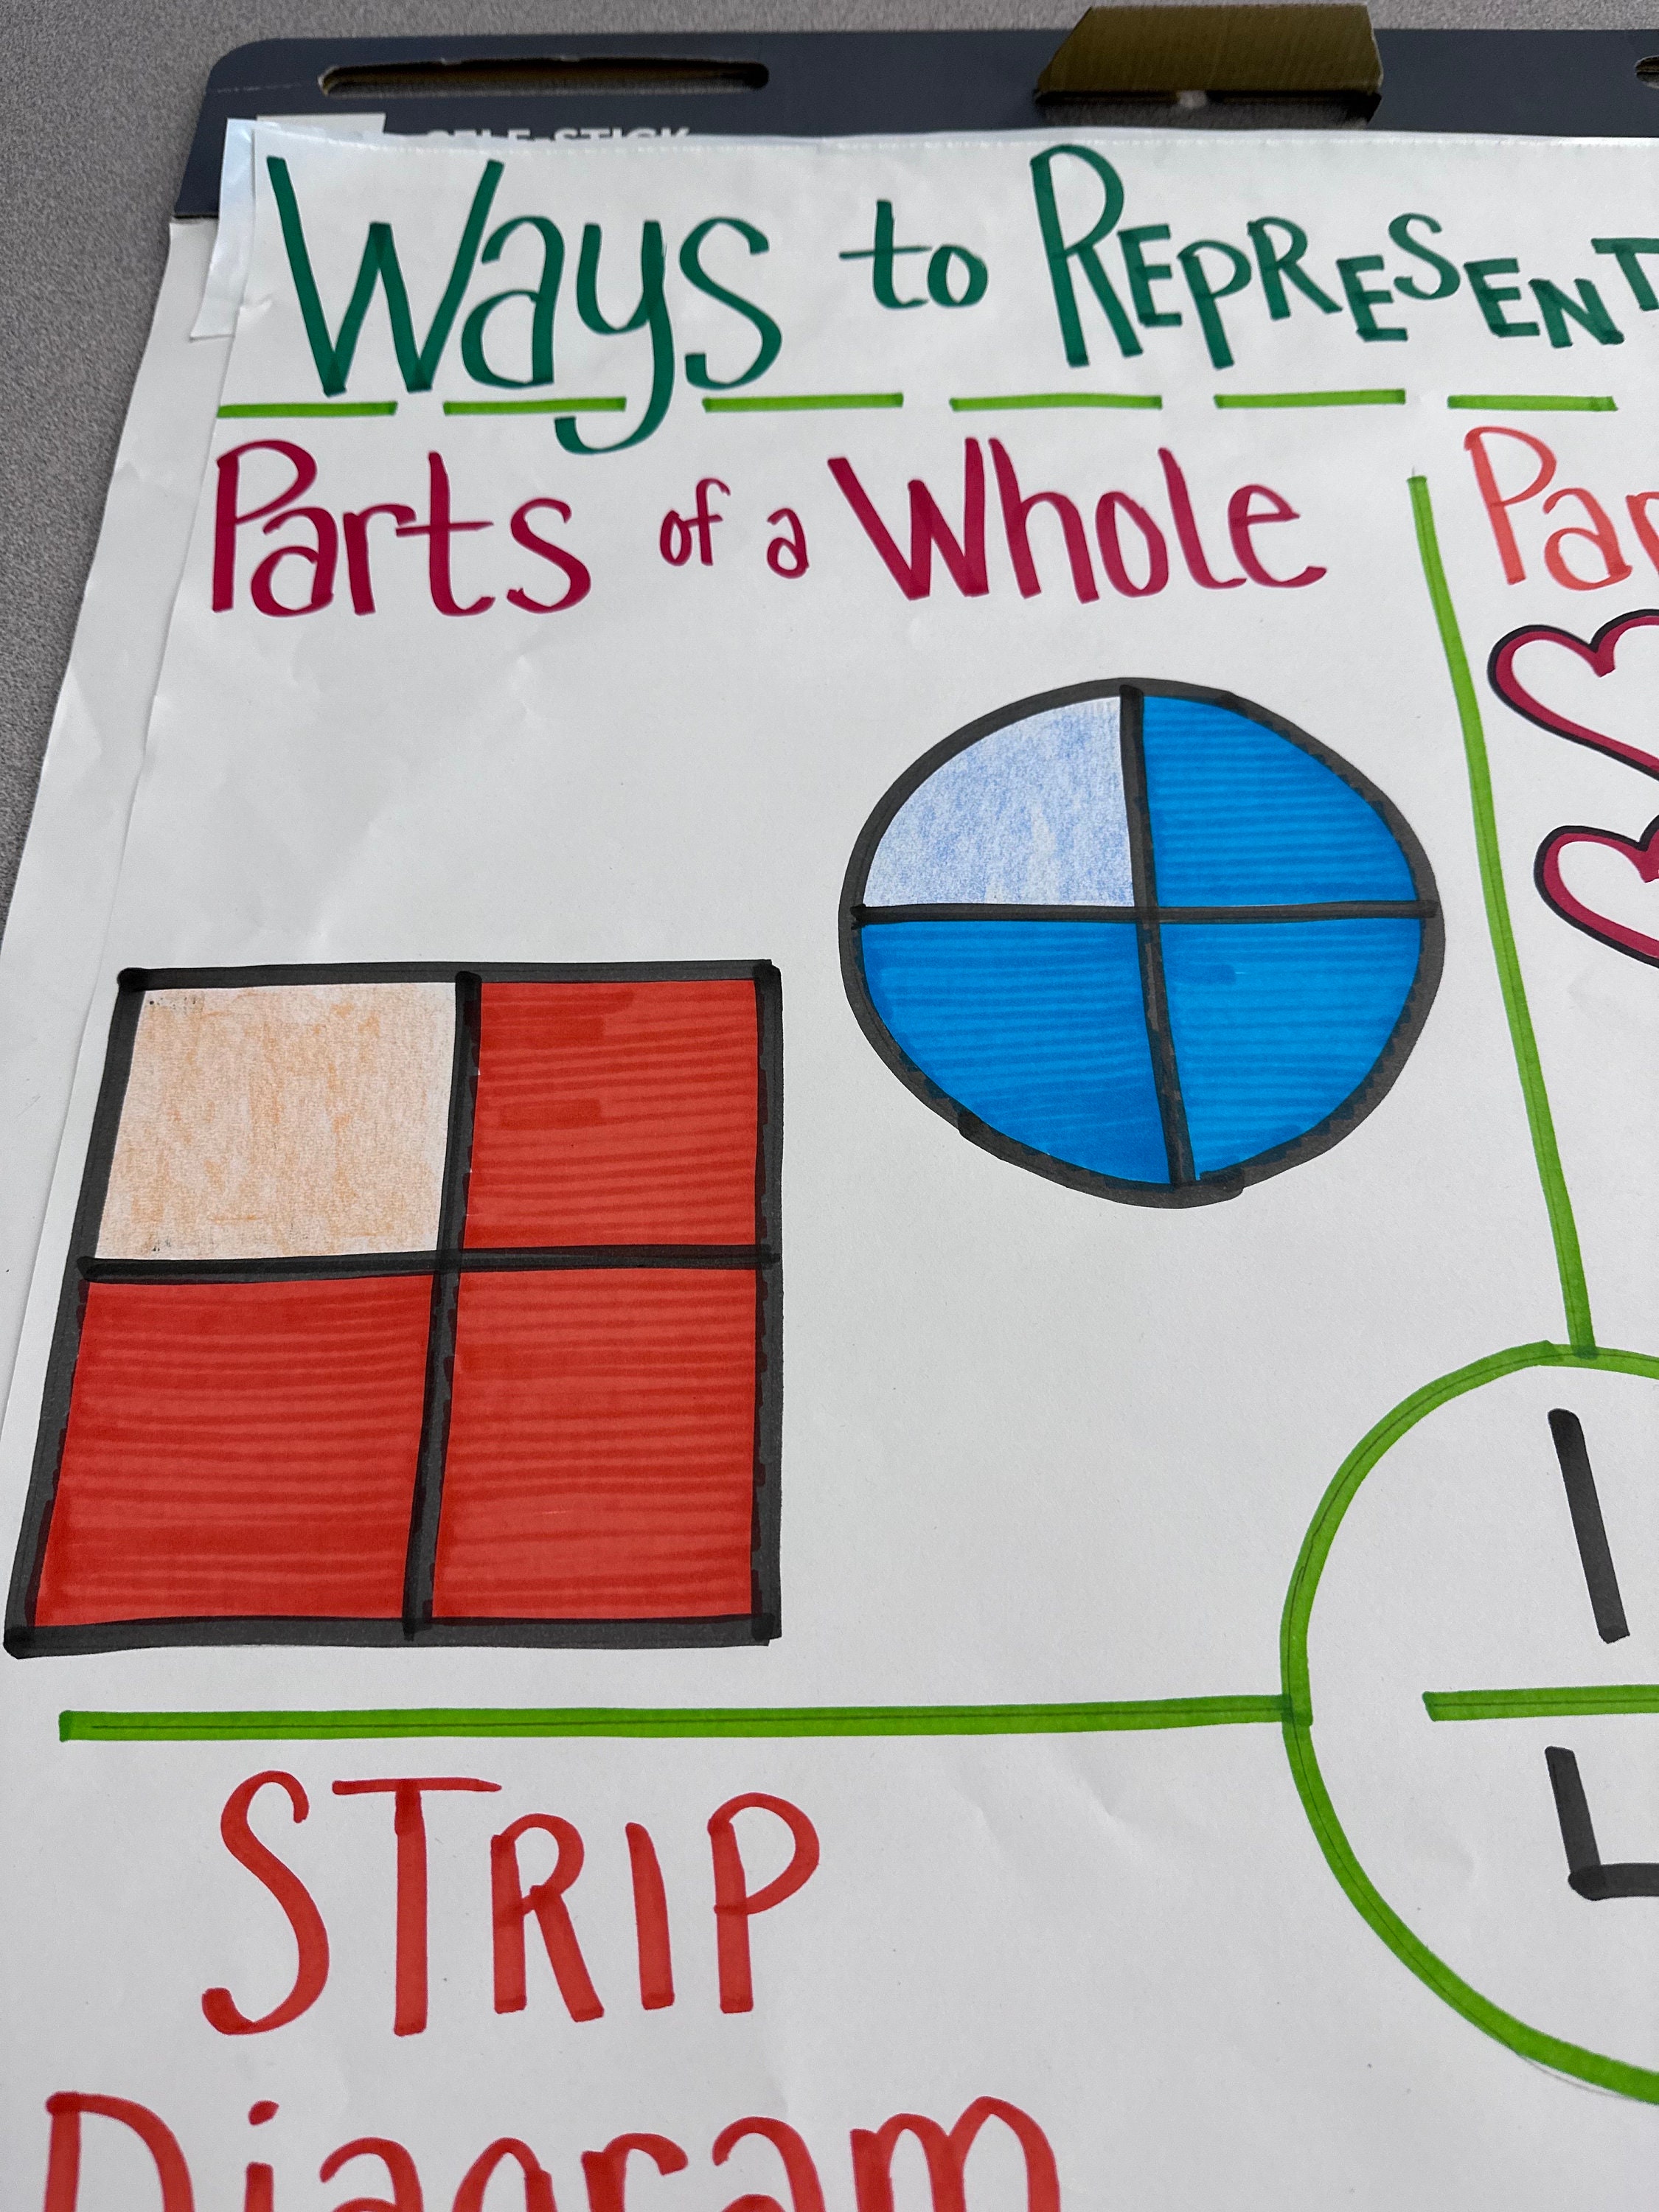 SELF-STICK
Ways to REPRESENT
Parts of a Whole
STRIP
Diagram